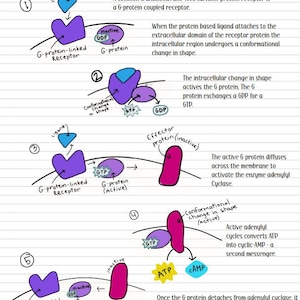 ①
a G protein coupled receptor.
When the protein based ligand attaches to the
extracellular domain of the receptor protein the
intracellular region undergoes a conformational
change in shape.
inactive
GDP
G-protein-linked
Receptor
G-protein
②
The intracellular change in shape
actives the G protein. The G
protein exchanges a GDP for a
GTP.
Conformational
change in
shape
GTP
GDP
③
Ligand
Effector
protein (inactive)
The active G protein diffuses
across the membrane to
activate the enzyme adenylyl
Cyclase.
GTP
G-protein-linked
Receptor
G-protein
(active)
④
Conformational
change in shape
(active)
GTP
Active adenylyl
cycles converts ATP
into cyclic-AMP - a
second messenger.
ATP
cAMP
⑤
inactive
inactive
GDP
Once the G protein detaches from adenylyl cyclase, it